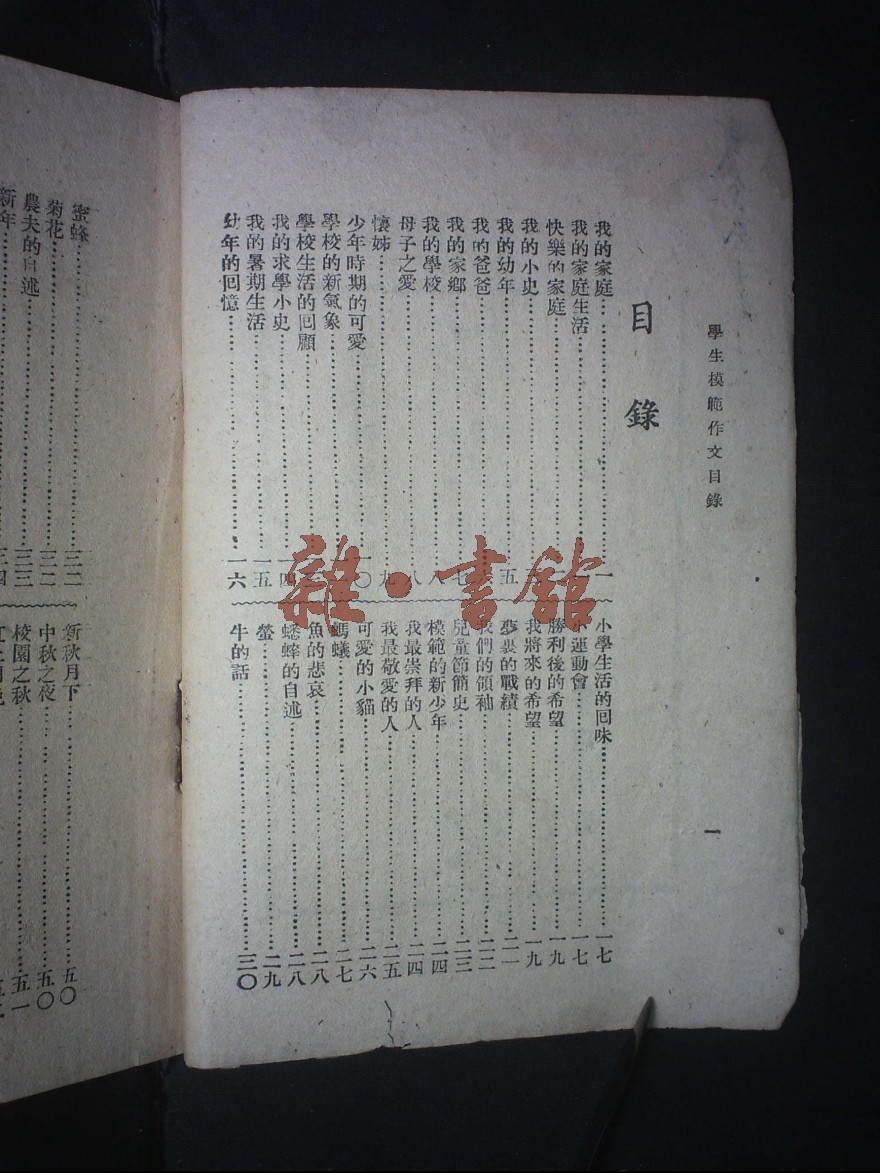 學生模範作文目錄
一
目錄
我的家庭……一
我的家庭生活……
快樂的家庭……
我的小史……
我的幼年……五
我的爸爸……六
我的家鄉……七
我的學校……八
母子之愛……八
懷姊……九
少年時期的可愛……一〇
學校的新氣象……
學校生活的回顧……
我的求學小史……一四
我的暑期生活……一五
幼年的回憶……一六
小學生活的回味……一七
小運動會……一七
勝利後的希望……一九
我將來的希望……一九
夢裏的戰績……二一
我們的領袖……二二
兒童節簡史……二三
模範的新少年……二四
我最崇拜的人……二四
我最敬愛的人……二五
可愛的小貓……二六
螞蟻……二七
魚的悲哀……二八
蟋蟀的自述……二八
螢……二九
牛的話……三〇
蜜蜂……三二
菊花……三二
農夫的自述……三三
新年……三四
新秋月下……五〇
中秋之夜……五〇
校園之秋……五一
雜·書館